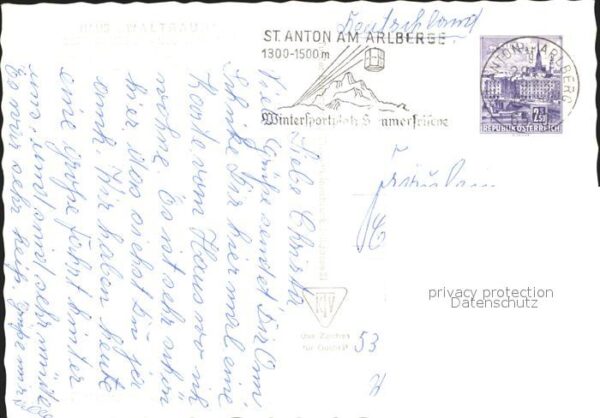 Deutschland
ST. ANTON AM ARLBERG
1300-1500m
Wintersportplatz Sommerfrische
ST. ANTON AM ARLBERG
2.50
REPUBLIK ÖSTERREICH
Fräulein
privacy protection
Datenschutz
53
Das Zeichen
für Qualität
HAUS WALTRAUD
Liebe Christa
Viele Grüße sendet Dir
Schicke Dir hier mal eine
Karte vom Haus wo ich
wohne. Es ist sehr schön
hier, was siehst Du ja
auch. Wir haben heute
eine große Fahrt hinter
uns, und sind sehr müde.
Es war sehr heiß. Grüße